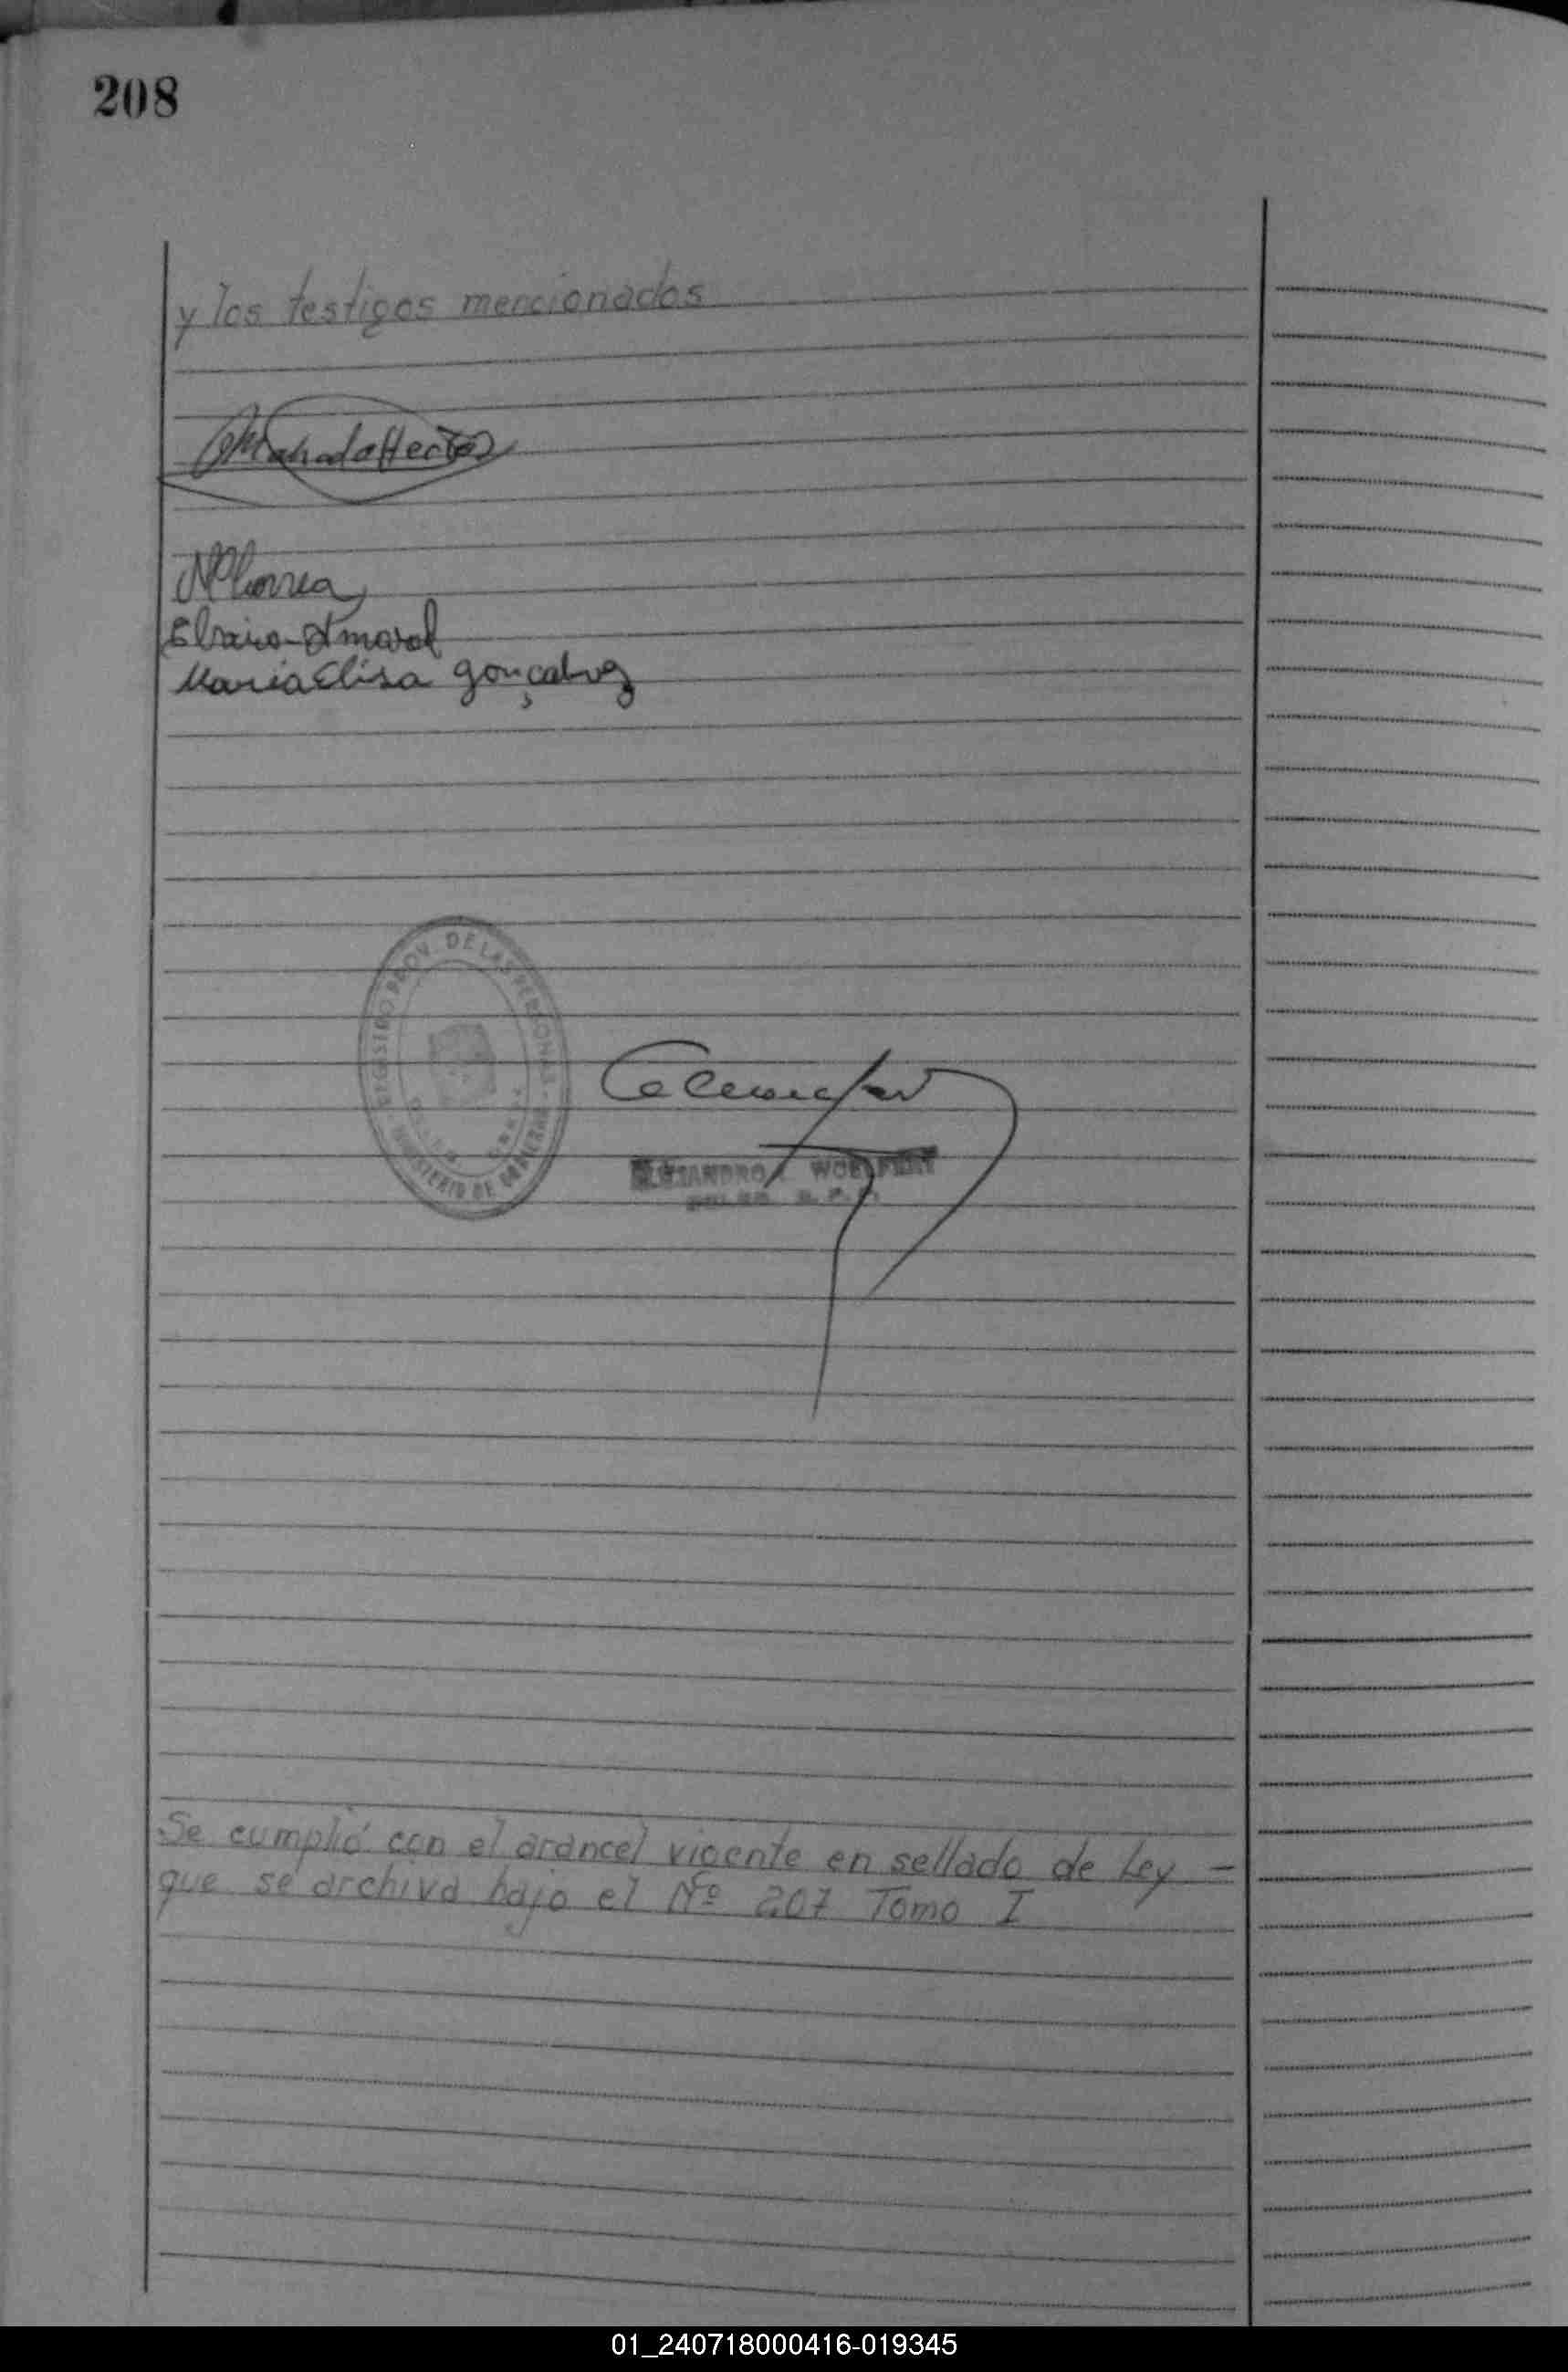 208
y los testigos mencionados
Machado Hector
Correa
Elvira Amaral
Maria Elisa Gonçalvez
REGISTRO PROV. DE LAS PERSONAS
MINISTERIO DE
ALEJANDRO
Se cumplió con el arancel vigente en sellado de Ley -
que se archiva bajo el Nº 207 Tomo I
01_240718000416-019345